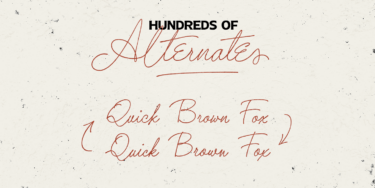 HUNDREDS OF
Alternates
Quick Brown Fox
Quick Brown Fox